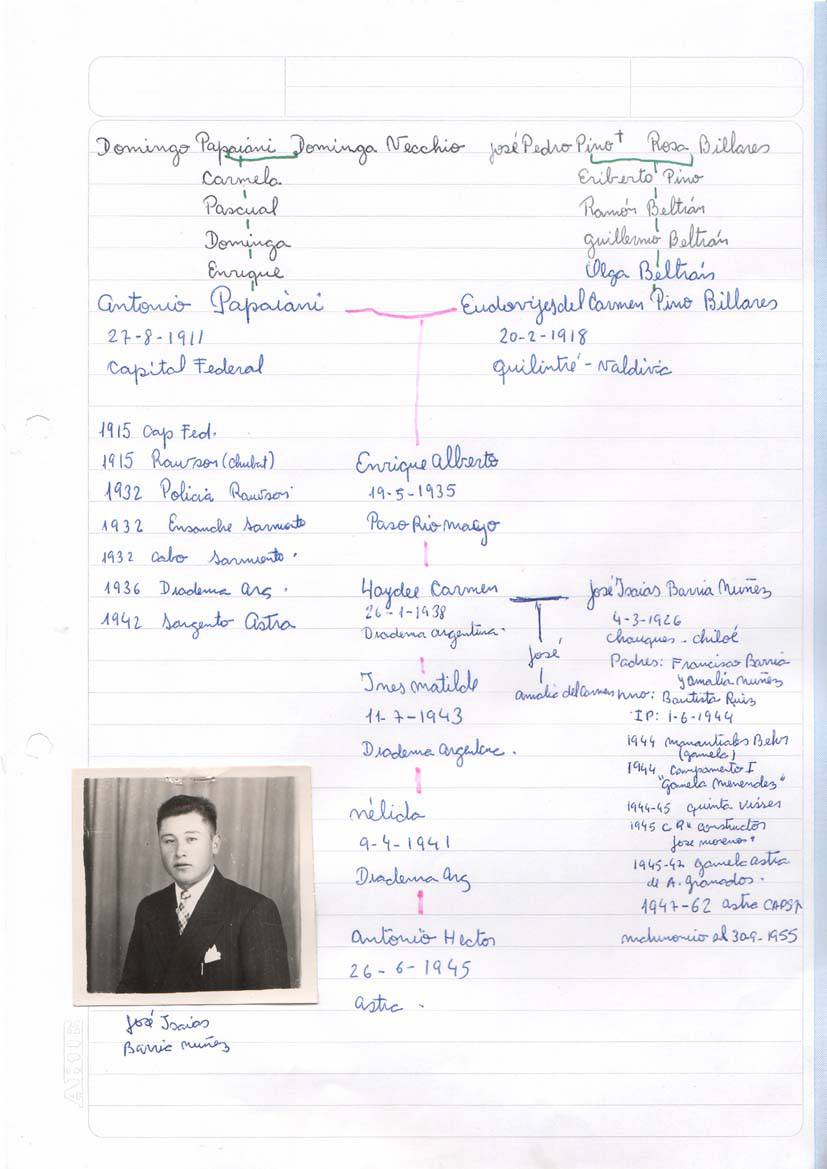 Domingo Papaiáni Dominga Vecchio José Pedro Pino† Rosa Billares
Carmela
Pascual
Dominga
Enrique
Eriberto Pino
Ramón Beltrán
Guillermo Beltrán
Olga Beltrán
Antonio Papaiáni
27-8-1911
Capital Federal
Eudovijes del Carmen Pino Billares
20-2-1918
Quilintré - Valdivia
1915 Cap Fed.
1915 Rawson (Chubut)
1932 Policia Rawson
1932 Ensanche Sarmiento
1932 Cabo Sarmiento.
1936 Diadema Arg.
1942 Sargento Astra
Enrique Alberto
19-5-1935
Paso Rio Mayo
Haydee Carmen
26-1-1938
Diadema Argentina.
Ines Matilde
11-7-1943
Diadema Argentina.
Nélida
9-4-1941
Diadema Arg
Antonio Hector
26-6-1945
Astra.
José
Amalia del Carmen
José Isaias Barria Nuñez
4-3-1926
Chauques - Chiloé
Padres: Francisco Barria
y Amalia Nuñez
Bautista Ruiz
IP: 1-6-1944
1944 Manantiales Behr
(gamela)
1944 Campamento I
"Gamela Menendez"
1944-45 Quinta
1945 constructor
José Moreno
1945-47 gamela Astra
de A. Granados.
1947-62 Astra CAPSA
Matrimonio el 30-9-1955
José Isaias
Barria Nuñez
ARTE